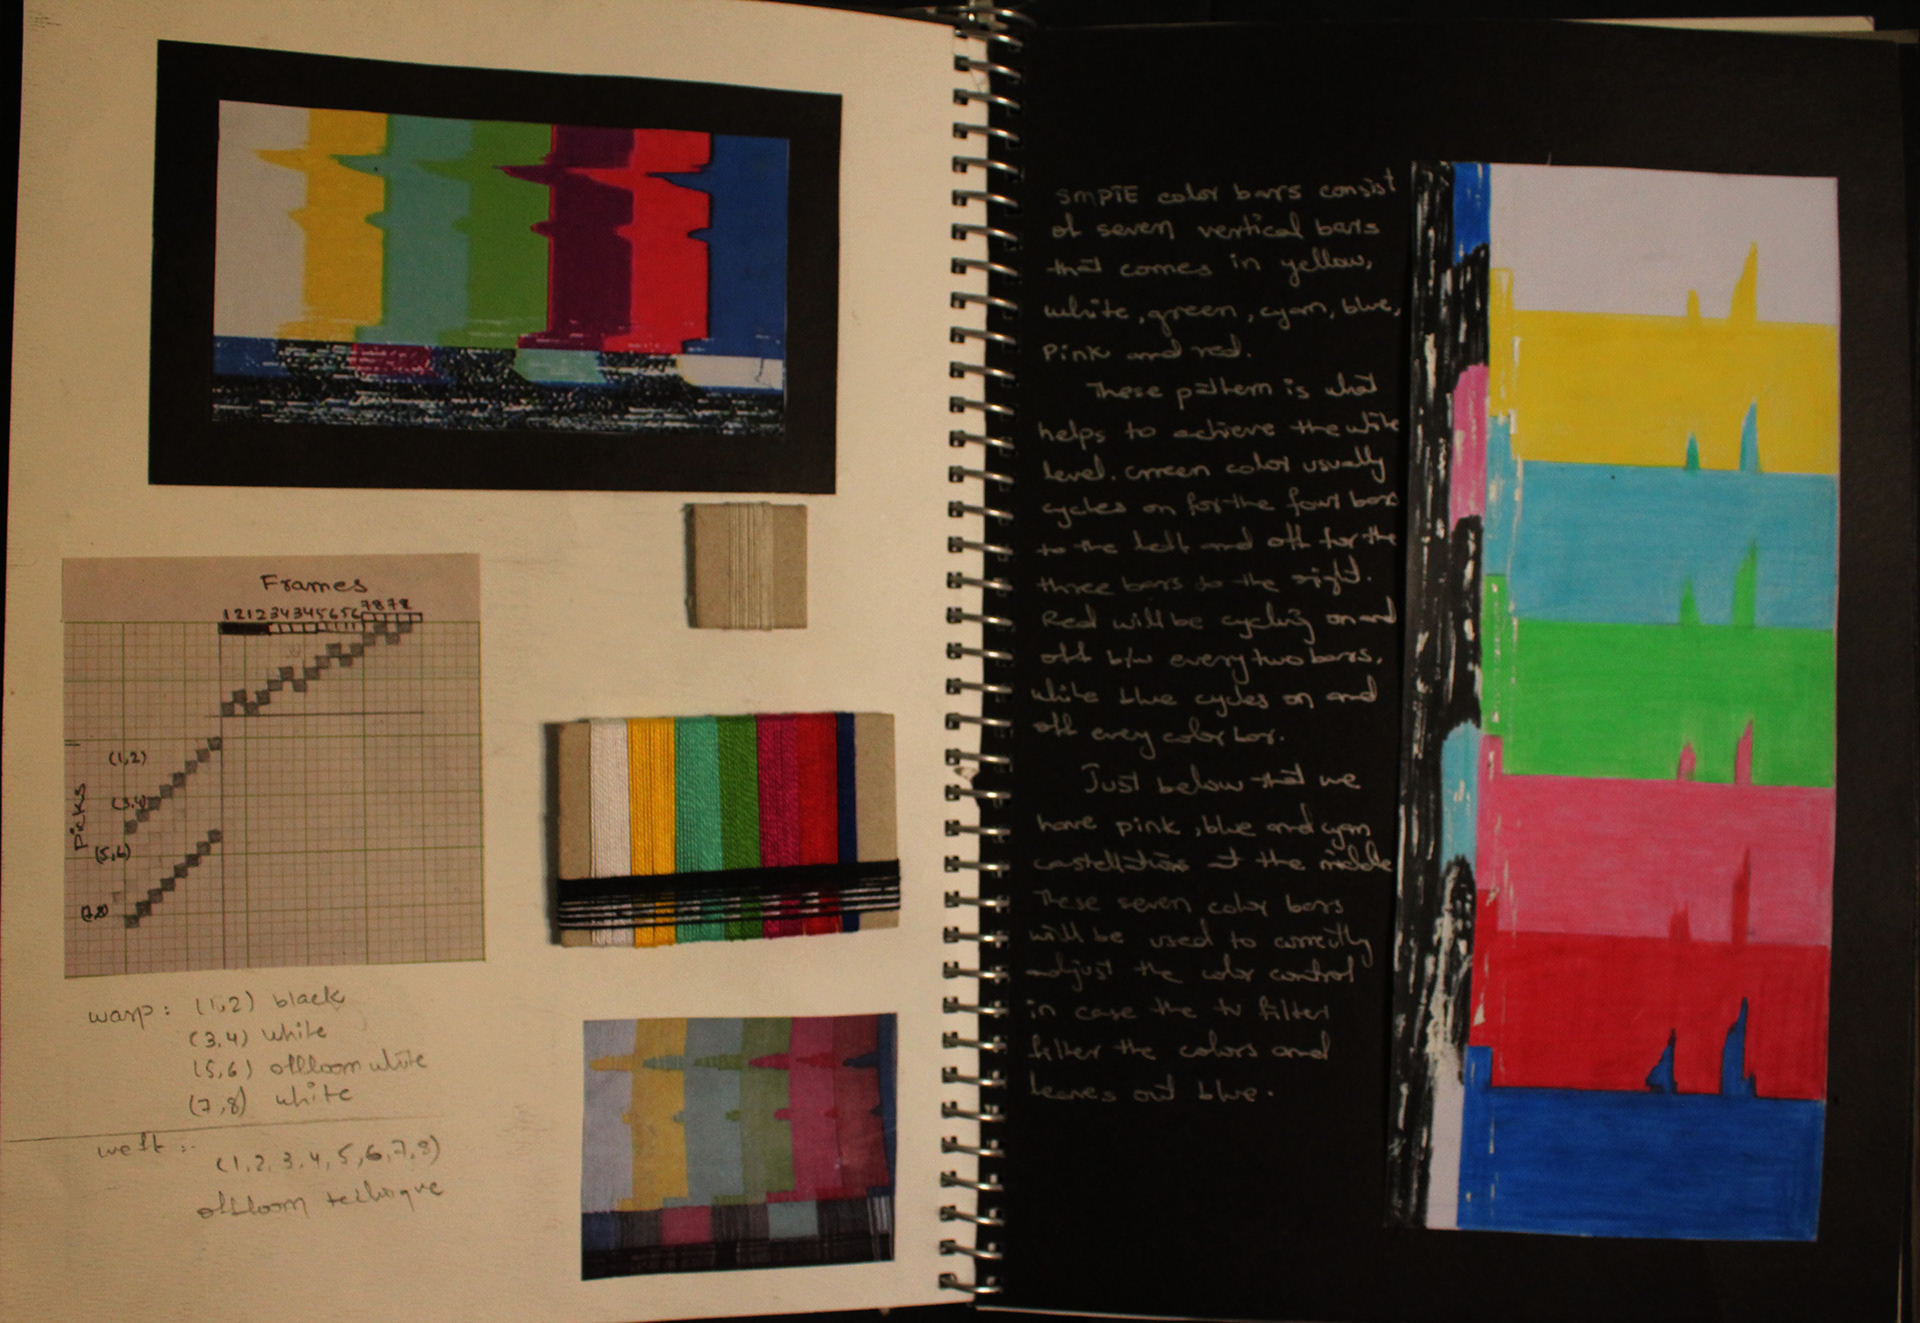 Frames
1 2 1 2 3 4 3 4 5 6 5 6 7 8 7 8
Picks
(1,2)
(3,4)
(5,6)
(7,8)
warp : (1,2) black
(3,4) white
(5,6) offloom white
(7,8) white
weft :-
(1,2,3,4,5,6,7,8)
offloom technique
SMPTE color bars consist
of seven vertical bars
that comes in yellow,
white, green, cyan, blue,
pink and red.
These pattern is what
helps to achieve the white
level. Green color usually
cycles on for the four bars
to the left and off for the
three bars to the right.
Red will be cycling on and
off b/w every two bars,
while blue cycles on and
off every color bar.
Just below that we
have pink, blue and cyan
castellations at the middle
These seven color bars
will be used to correctly
adjust the color control
in case the tv filter
filter the colors and
leaves out blue.